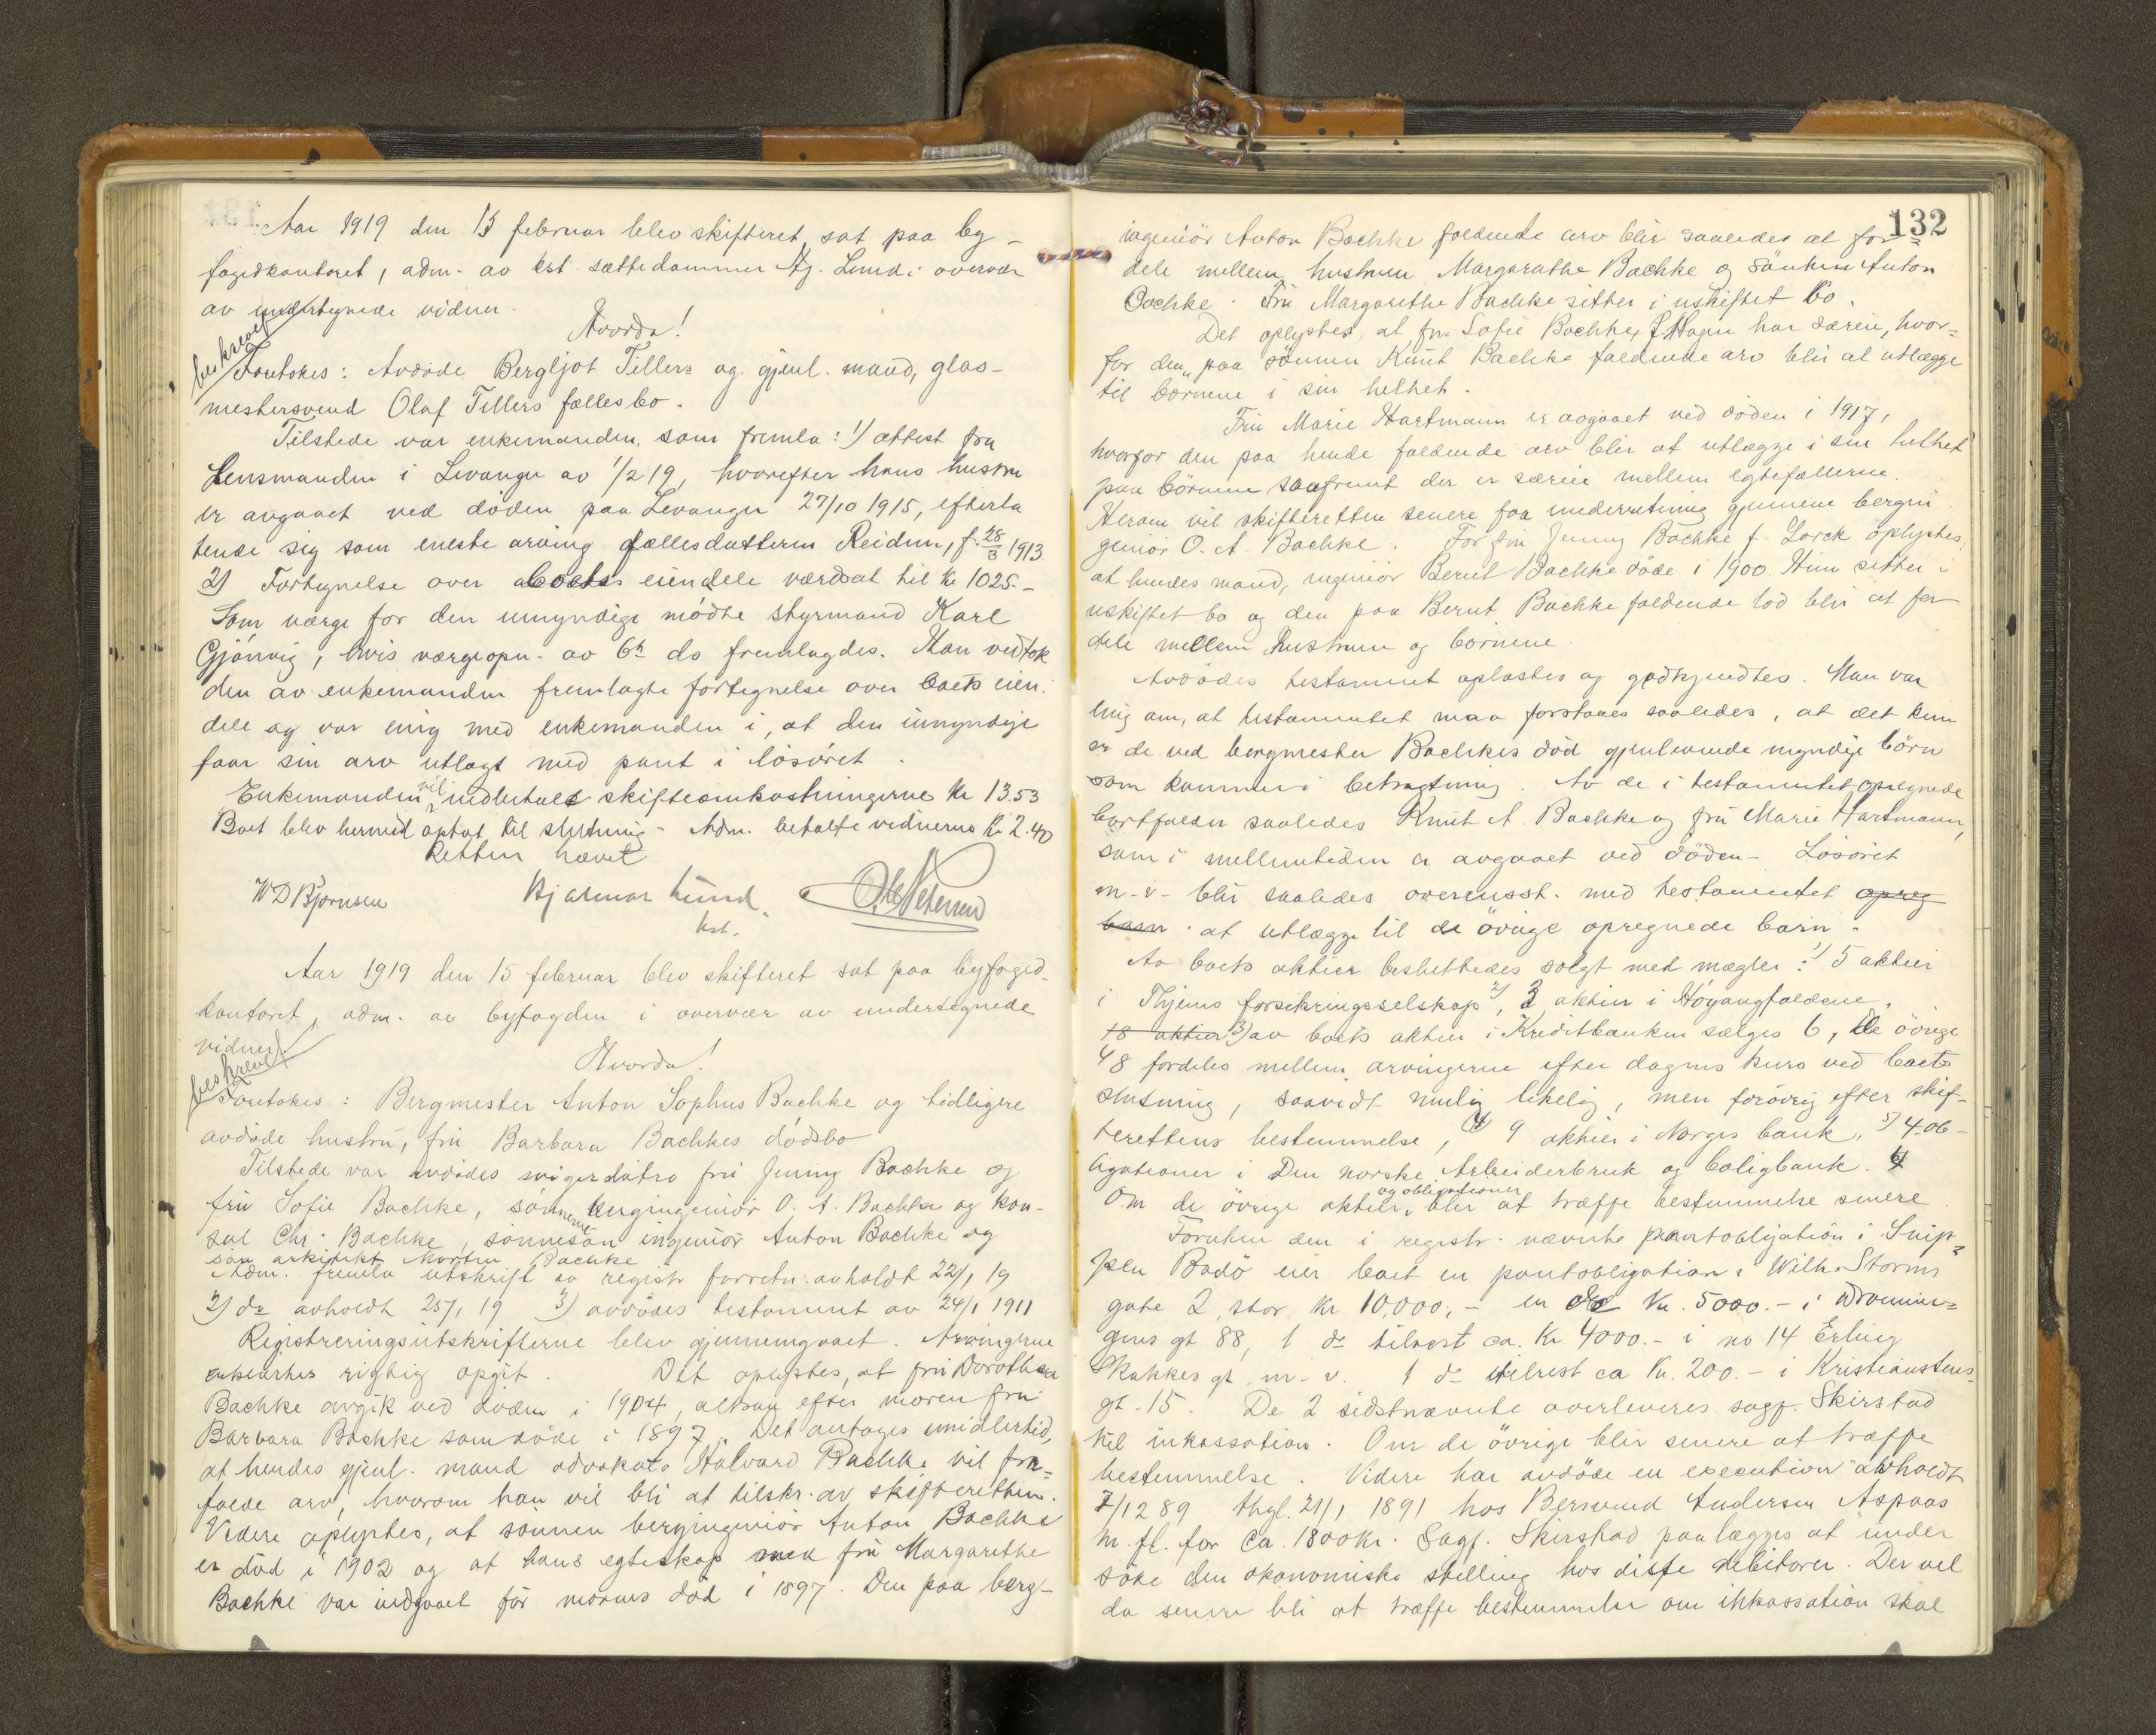 Aar 1919 den 13 februar blev skifteret sat paa by-
fogedkontoret, adm. av kst. sættedommer Hj. Lund i overvær
av undertegnede vidner.
Hvorda!
beskrevet
Foretokes: Avdøde Bergljot Tillers og gjenl. mand, glas-
mestersvend Olaf Tillers fællesbo.
Tilstede var enkemanden, som fremla: 1) attest fra
Lensmanden i Levanger av 1/2 19, hvorefter hans hustru
er avgaaet ved døden paa Levanger 27/10 1915, efterla
tende sig som eneste arving fællesdatteren Reidun, f. 28/3 1913.
2) Fortegnelse over boets eiendele værdsat til kr 1025.-
Som værge for den umyndige mødte styrmand Karl
Gjønvig, hvis værgeopn. av 6te ds fremlagdes. Han vedtok
den av enkemanden fremlagte fortegnelse over boets eien-
dele og var enig med enkemanden i, at den umyndige
faar sin arv utlagt med pant i løsøret.
Enkemanden vil indbetale skifteomkostningerne kr 13.53
Boet blev hermed optat til slutning. Adm. betalte vidnerne kr 2.40
Retten hævet
W D Bjørnsen Hjalmar Lund. Ole Petersen
kst.
Aar 1919 den 15 februar blev skifteret sat paa byfoged-
kontoret, adm. av byfogden i overvær av undertegnede
vidner.
Hvorda!
beskrevet
Foretokes: Bergmester Anton Sophus Bachke og tidligere
avdøde hustru, fru Barbara Bachkes dødsbo
Tilstede var avdødes svigerdøtre fru Jenny Bachke og
fru Sofie Bachke, sønnerne bergingeniør O. A. Bachke og kon-
sul Chr. Bachke, sønnesøn ingeniør Anton Bachke og
søn arkitekt Morten Bachke
Adm. fremla utskrift av registr forretn. avholdt 22/1 19
2) do avholdt 25/1 19 3) avdødes testament av 24/1 1911
Registreringsutskrifterne blev gjennemgaaet. Arvingerne
erklærtes rigtig opgit. Det oplystes, at fru Dorothea
Bachke avgik ved døden i 1904, altsaa efter moren fru
Barbara Bachke som døde i 1897. Det antages imidlertid,
at hendes gjenl. mand advokat Halvard Bachke vil fra-
falde arv, hvorom han vil bli at tilskr. av skifteretten.
Videre oplystes, at sønnen bergingeniør Anton Bachke
er død i 1902 og at hans egteskap med fru Margarethe
Bachke var indgaaet før morens død i 1897. Den paa berg-
132
ingeniør Anton Bachke faldende arv blir saaledes at for-
dele mellem hustruen Margarethe Bachke og sønnen Anton
Bachke. Fru Margarethe Bachke sitter i uskiftet bo.
Det oplystes, at fru Sofie Bachke f. Hagen har særeie, hvor-
for den paa sønnen Knut Bachke faldende arv blir at utlægge
til børnene i sin helhet.
Fru Marie Hartmann er avgaaet ved døden i 1917,
hvorfor den paa hende faldende arv blir at utlægge i sin helhet
paa børnene saafremt der er særeie mellem egtefællerne.
Herom vil skifteretten senere faa underretning gjennem bergin
geniør O. A. Bachke. For fru Jenny Bachke f. Lorck oplystes,
at hendes mand, ingeniør Bernt Bachke døde i 1900. Hun sitter i
uskiftet bo og den paa Bernt Bachke faldende lod blir at for
dele mellem hustruen og børnene.
Avdødes testament oplæstes og godkjendtes. Man var
enig om, at testamentet maa forstaaes saaledes, at det kun
er de ved bergmester Bachkes død gjenlevende myndige børn
som kommer i betragtning. Av de i testamentet opregnede
bortfalder saaledes Knut A. Bachke og fru Marie Hartmann,
som i mellemtiden er avgaaet ved døden. Løsøret
m. v. blir saaledes overensst. med testamentet opreg
børn at utlægge til de øvrige opregnede børn.
Av boets aktier besluttedes solgt med mægler: 1) 5 aktier
i Thjems forsikringsselskap, 2) 3 aktier i Høyangfaldene,
18 aktier 3) av boets aktier i Kreditbanken sælges 6, de øvrige
48 fordeles mellem arvingerne efter dagens kurs ved boets
slutning, saavidt mulig likelig, men forøvrig efter skif-
terettens bestemmelse, 4) 9 aktier i Norges bank, 5) 4 ob-
ligationer i Den norske Arbeiderbruk og boligbank.
Om de øvrige aktier og obligationer blir at træffe bestemmelse senere
Foruten den i registr. nævnte pantobligation i Snip-
pen Bodø eier boet en pantobligation i Wilh. Storms
gate 2, stor kr 10,000,- en do kr. 5000.- i Dronnin-
gens gt 88, 1 do tilrest ca. kr 4000.- i no 14 Erling
Skakkes gt m. v. 1 do tilrest ca kr. 200.- i Kristianstens-
gt. 15. De 2 sidstnævnte overleveres sagf. Skirstad
til inkassation. Om de øvrige blir senere at træffe
bestemmelse. Videre har avdøde en execution avholdt
7/12 89 thgl. 21/1 1891 hos Bersvend Andersen Aspaas
m. fl. for ca. 1800 kr. Sagf. Skirstad paalægges at under
søke den økonomiske stilling hos disse debitorer. Der vil
da senere bli at træffe bestemmelse om inkassation skal